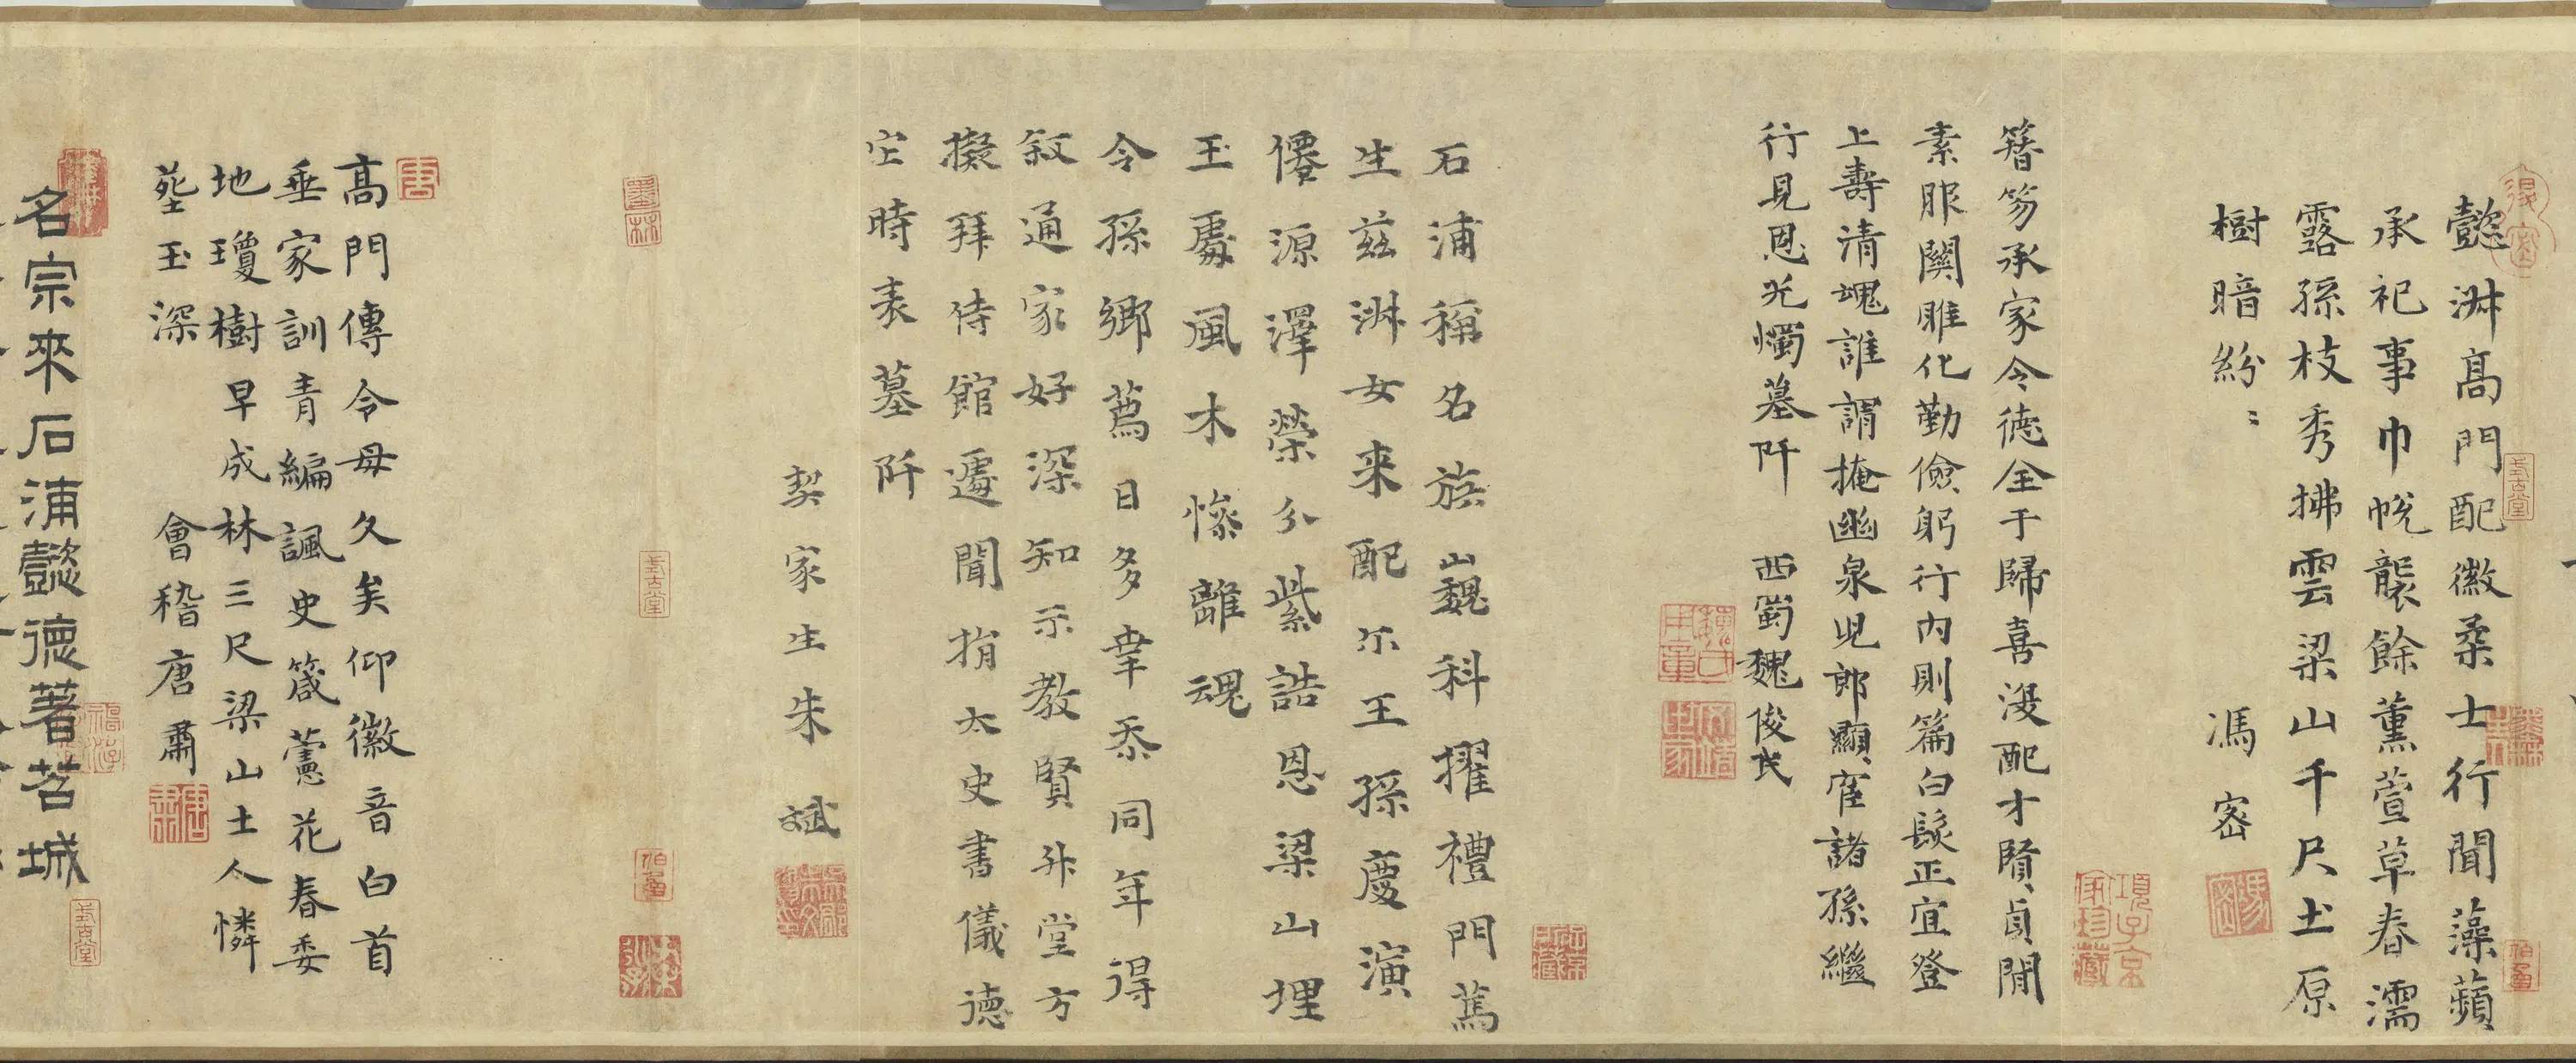 懿淑高門配徽柔士行聞藻蘋
承祀事巾帨襲餘薰萱草春濡
露孫枝秀拂雲梁山千尺土原
樹暗紛〻
馮宻
簪笏承家令德全于歸喜淂配才賢貞閒
素服闗雎化勤儉躬行内則篇白髮正宜登
上壽清魂誰謂掩幽泉児郎顯宦諸孫繼
行見恩光燭墓阡
西蜀魏俊民
石浦稱名族巍科擢禮門篤
生兹淑女来配尓王孫慶演
僊源澤榮分紫誥恩梁山埋
玉處風木慘離魂
令孫鄉薦日多幸忝同年得
叙通家好深知示教賢升堂方
擬拜侍館遽聞捐太史書儀德
它時表墓阡
契家生朱斌
墨林
式古堂
髙門傳令母久矣仰徽音白首
垂家訓青編諷史箴藼花春委
地瓊樹早成林三尺梁山土人憐
塟玉深
會稽唐肅
名宗來石浦懿德著苕城
式古堂